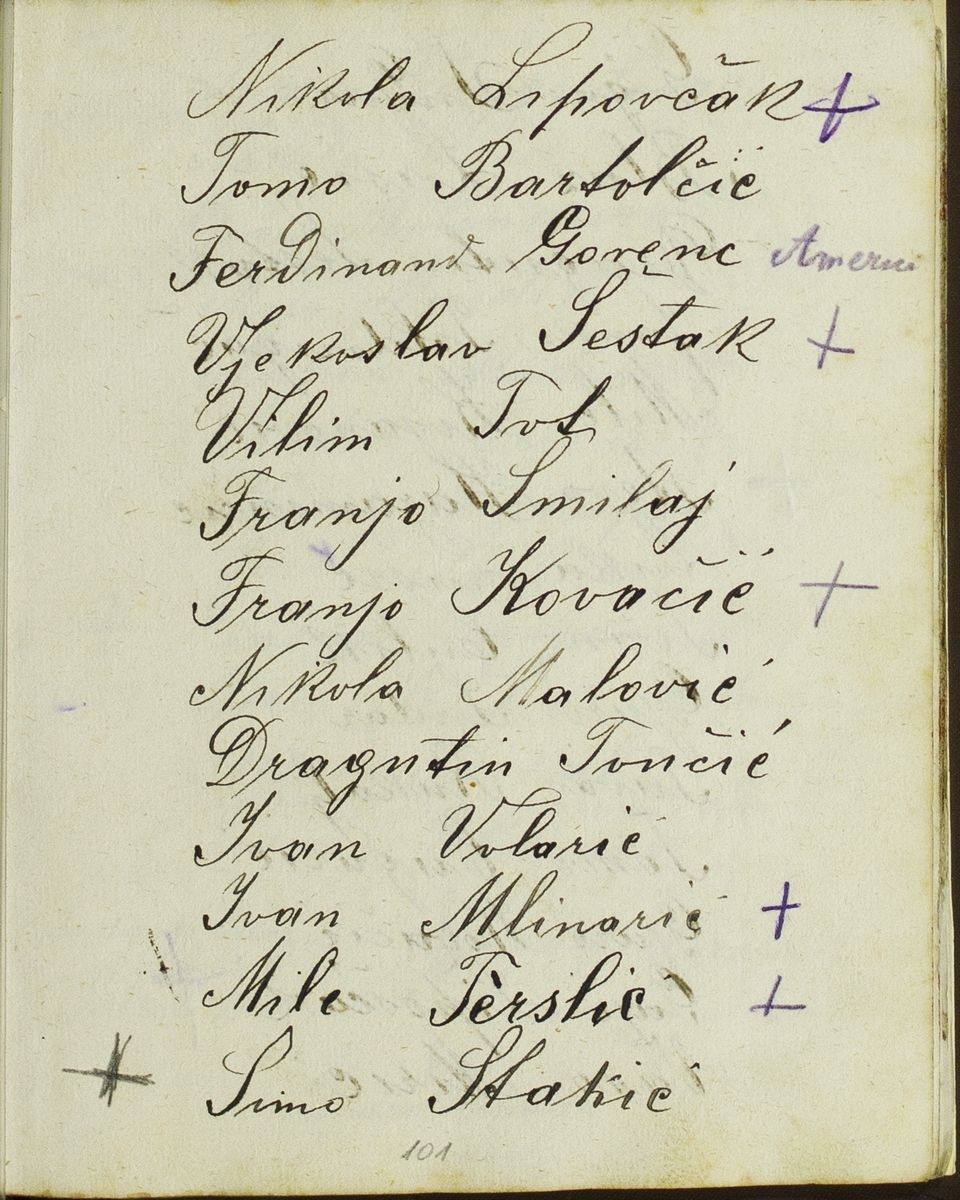 Nikola Lipovčak +
Tomo Bartolčić
Ferdinand Gorenc
Vjekoslav Šestak +
Vilim Tot
Franjo Smilaj
Franjo Kovačić +
Nikola Malović
Dragutin Tončić
Ivan Volarić
Ivan Mlinarić +
Mile Terslić +
+ Simo Stakić
101